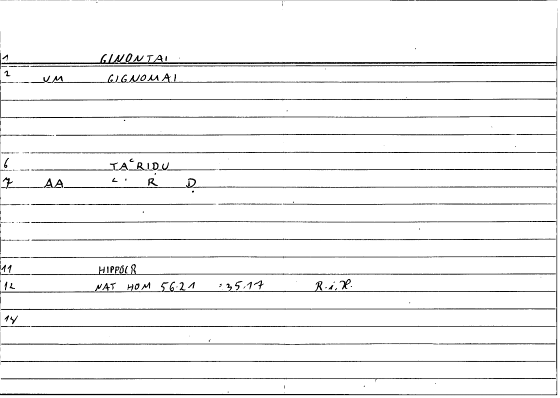 1 GINONTAI
2 UM GIGNOMAI
6 TAʿRIḌU
7 AA ʿ R Ḍ
11 HIPPOCR
12 NAT HOM 56.21 :35.17 R.i.H.
14